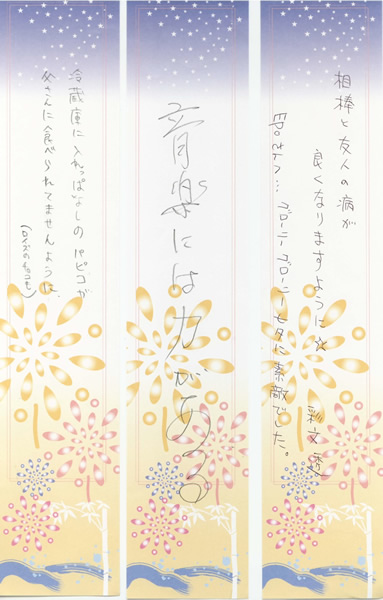 相棒と友人の病が
良くなりますように☆
七夕に素敵でした。
音楽には力がある
冷蔵庫に入れっぱなしのパピコが
父さんに食べられてませんように。
(ロイズのチョコも)